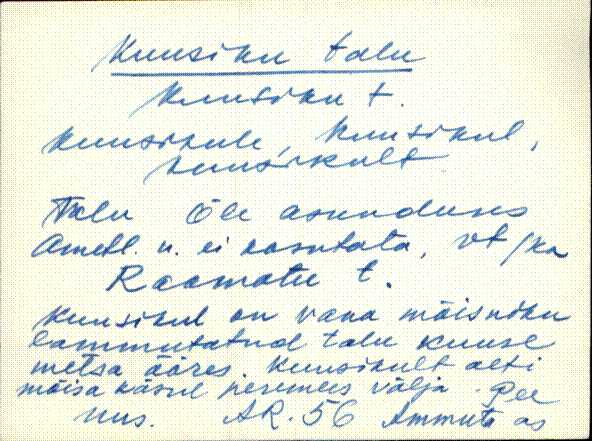 Kuusiku talu
Kuusiku t.
Kuusikule, Kuusikul,
Kuusikult
Talu Õle asunduses
Ametl. n. ei kasutata, vt/ka
Raamatu t.
Kuusikul on vana mõisniku
lammutatud talu kuuse
metsa ääres. Kuusikult aeti
mõisa käsul peremees välja.
nus. AR. 56 Ammuta as